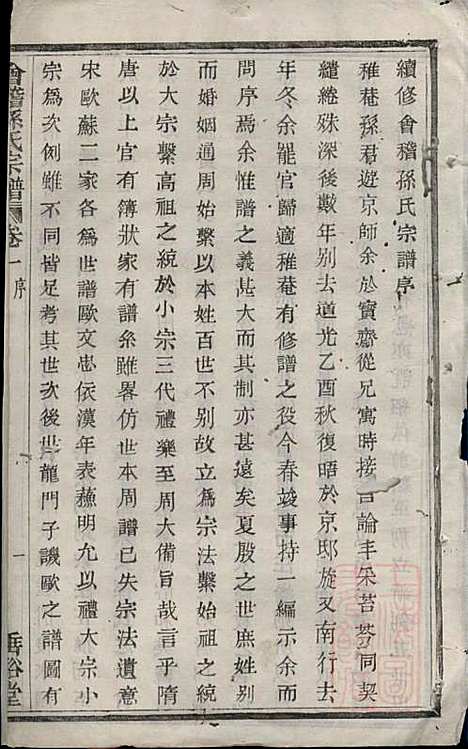 續修會稽孫氏宗譜序
稚菴孫君遊京師余於實齋從兄寓時接言論丰采苔芩同契
繾綣殊深後數年别去道光乙酉秋復晤於京邸旋又南行去
年冬余罷官歸適稚菴有修譜之役今春竣事持一編示余而
問序焉余惟譜之義甚大而其制亦甚遠矣夏殷之世庶姓别
而婚姻通周始繫以本姓百世不别故立為宗法繫始祖之統
於大宗繫高祖之統於小宗三代禮樂至周大備旨哉言乎隋
唐以上官有簿狀家有譜系雖畧仿世本周譜已失宗法遺意
宋歐蘇二家各為世譜歐文忠依漢年表蘓明允以禮大宗小
宗為次例雖不同皆足考其世次後世龍門子譏歐之譜圖有
會稽孫氏宗譜 卷一 序 一 垂裕堂